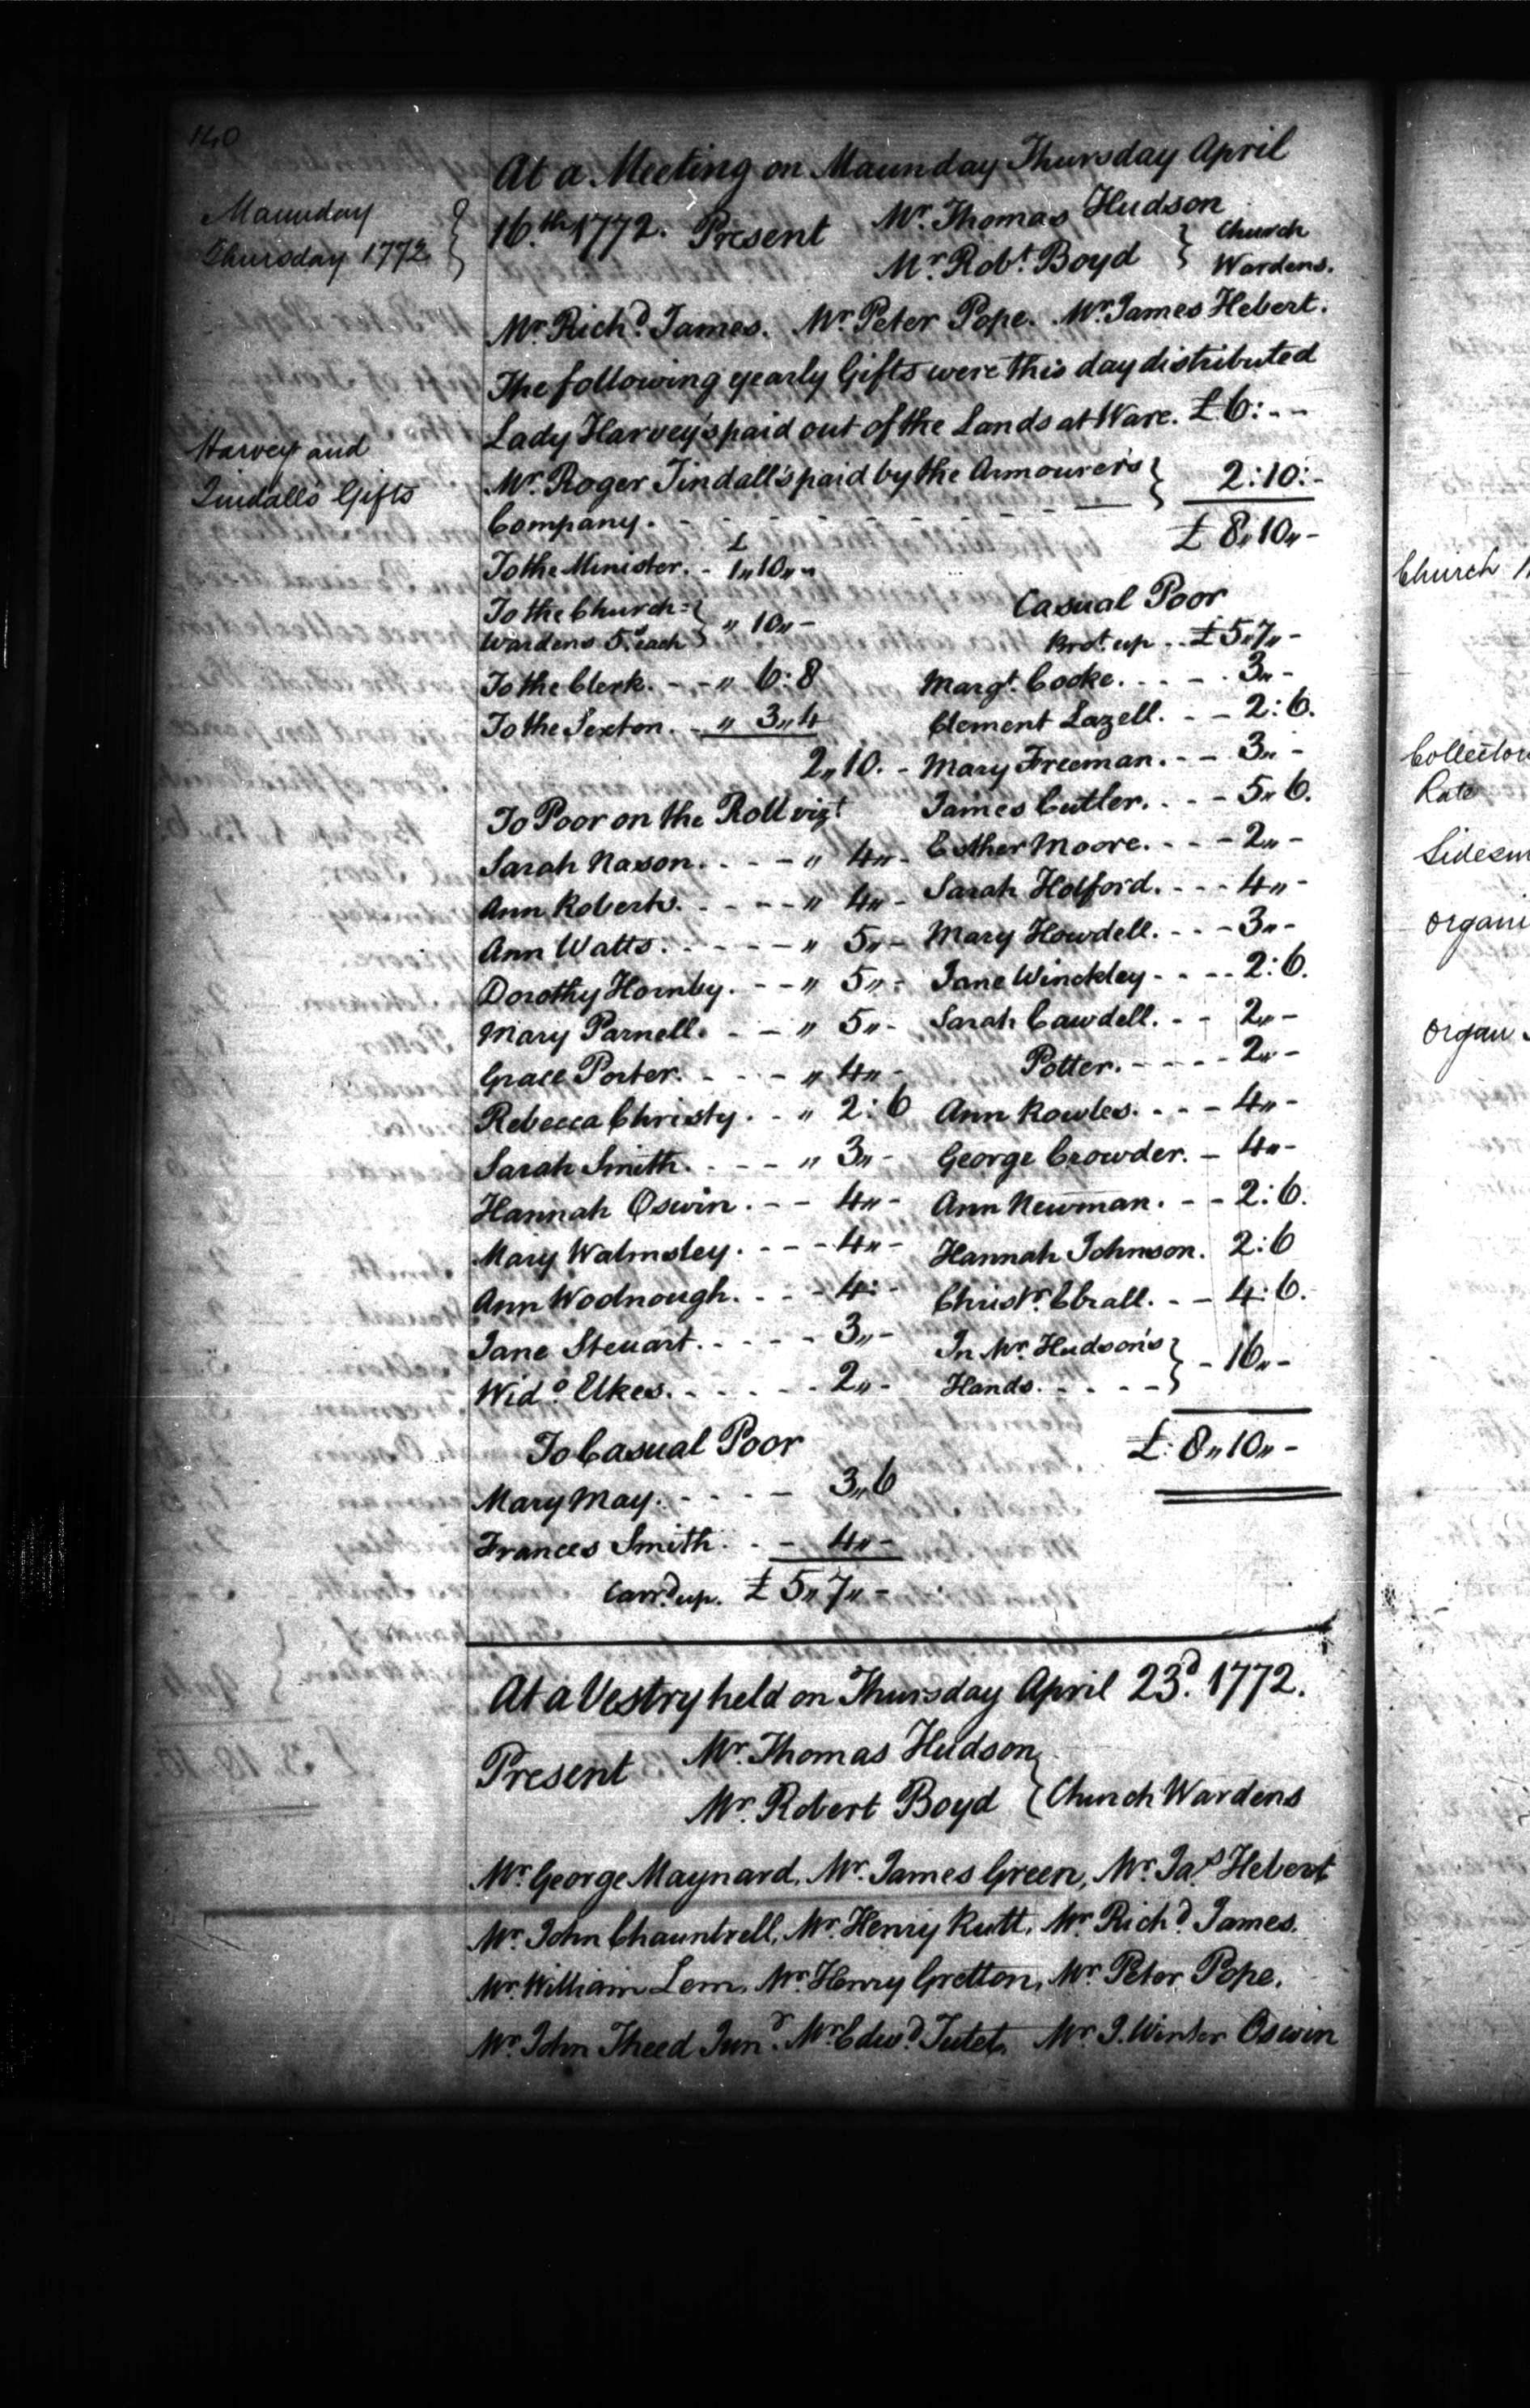 140
At a Meeting on Maunday Thursday April
Maunday
Thursday 1772
16th. 1772. Present Mr. Thomas Hudson
Mr. Robt. Boyd } Church Wardens.
Mr. Richd. James. Mr. Peter Pope. Mr. James Hebert.
The following yearly Gifts were this day distributed
Harvey and
Tindall's Gifts
Lady Harvey's paid out of the Lands at Ware. £6:--
Mr. Roger Tindall's paid by the Armourers } 2:10:-
Company. £8„10„-
To the Minister. - £1„10„-
To the Church=
Wardens 5s. each } „10„-
To the Clerk. - - „ 6:8
To the Sexton. - „ 3„4
2„10. -
To Poor on the Roll vizt
Sarah Nason. - - - - „ 4„-
Ann Roberts. - - - - „ 4„-
Ann Watts. - - - - - „ 5„-
Dorothy Hornby. - - „ 5„-
Mary Parnell. - - „ 5„-
Grace Porter. - - - „ 4„-
Rebecca Christy. - „ 2:6
Sarah Smith. - - - „ 3„-
Hannah Oswin. - - 4„-
Mary Walmsley. - - - 4„-
Ann Wodnough. - - - 4:-
Jane Steuart. - - - - 3„-
Wido. Elkes. - - - - - 2„-
To Casual Poor
Mary May. - - - - 3„6
Frances Smith. - - 4„-
Carrd. up. £5„7„-
Casual Poor
Brot. up - - £5„7„-
Margt. Cocke. - - - - 3„-
Clement Lazell. - - 2:6.
Mary Freeman. - - 3„-
James Cutler. - - - 5„6.
Esther Moore. - - - 2„-
Sarah Holford. - - - 4„-
Mary Howdell. - - - 3„-
Jane Winckley - - - - 2:6.
Sarah Cawdell. - - 2„-
Potter. - - - - - 2„-
Ann Rowles. - - - 4„-
George Crowder. - 4„-
Ann Newman. - - 2:6.
Hannah Johnson. 2:6
Christr. Ebrall. - - 4:6.
In Mr. Hudson's
Hands. - - - - } - 16„-
£:8„10„-
At a Vestry held on Thursday April 23d. 1772.
Present Mr. Thomas Hudson
Mr. Robert Boyd } Church Wardens
Mr. George Maynard, Mr. James Green, Mr. Jas. Hebert
Mr. John Chauntrell, Mr. Henry Rutt, Mr. Richd. James.
Mr. William Lem, Mr. Henry Gretton, Mr. Peter Pope.
Mr. John Theed Junr. Mr. Edwd. Tutet, Mr. J. Winter Oswin
Church
Collector
Rate
Organ